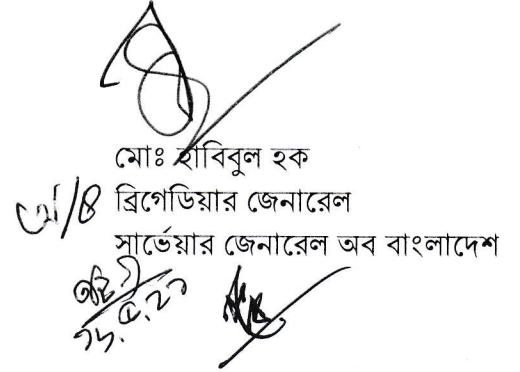 মোঃ হাবিবুল হক
ব্রিগেডিয়ার জেনারেল
সার্ভেয়ার জেনারেল অব বাংলাদেশ